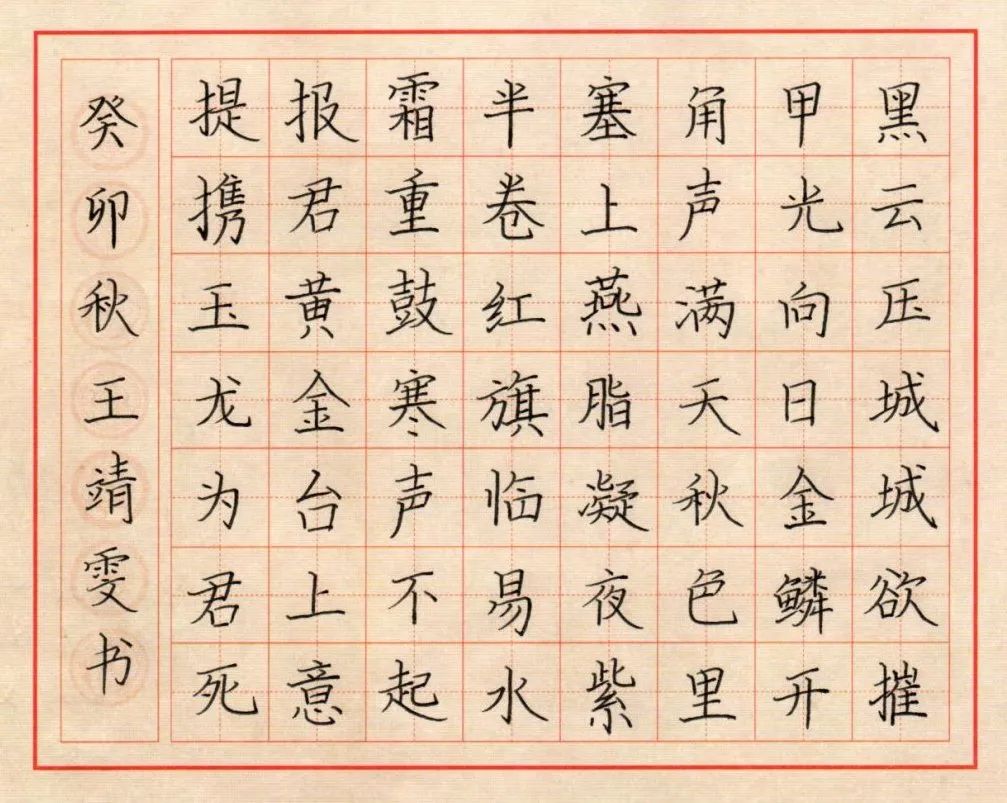 黑云压城城欲摧
甲光向日金鳞开
角声满天秋色里
塞上燕脂凝夜紫
半卷红旗临易水
霜重鼓寒声不起
报君黄金台上意
提携玉龙为君死
癸卯秋王靖雯书